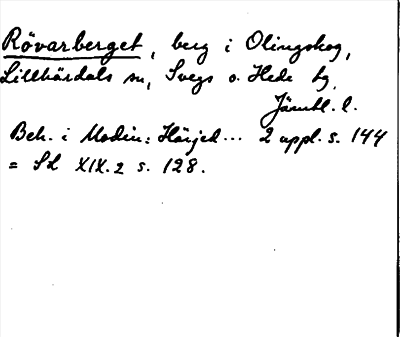 Rövarberget, berg i Olingskog,
Lillhärdals sn, Svegs o. Hede tg,
Jämtl. l.
Beh. i Modin: Härjed... 2 uppl. s. 144
= Sd XIX. 2 s. 128.